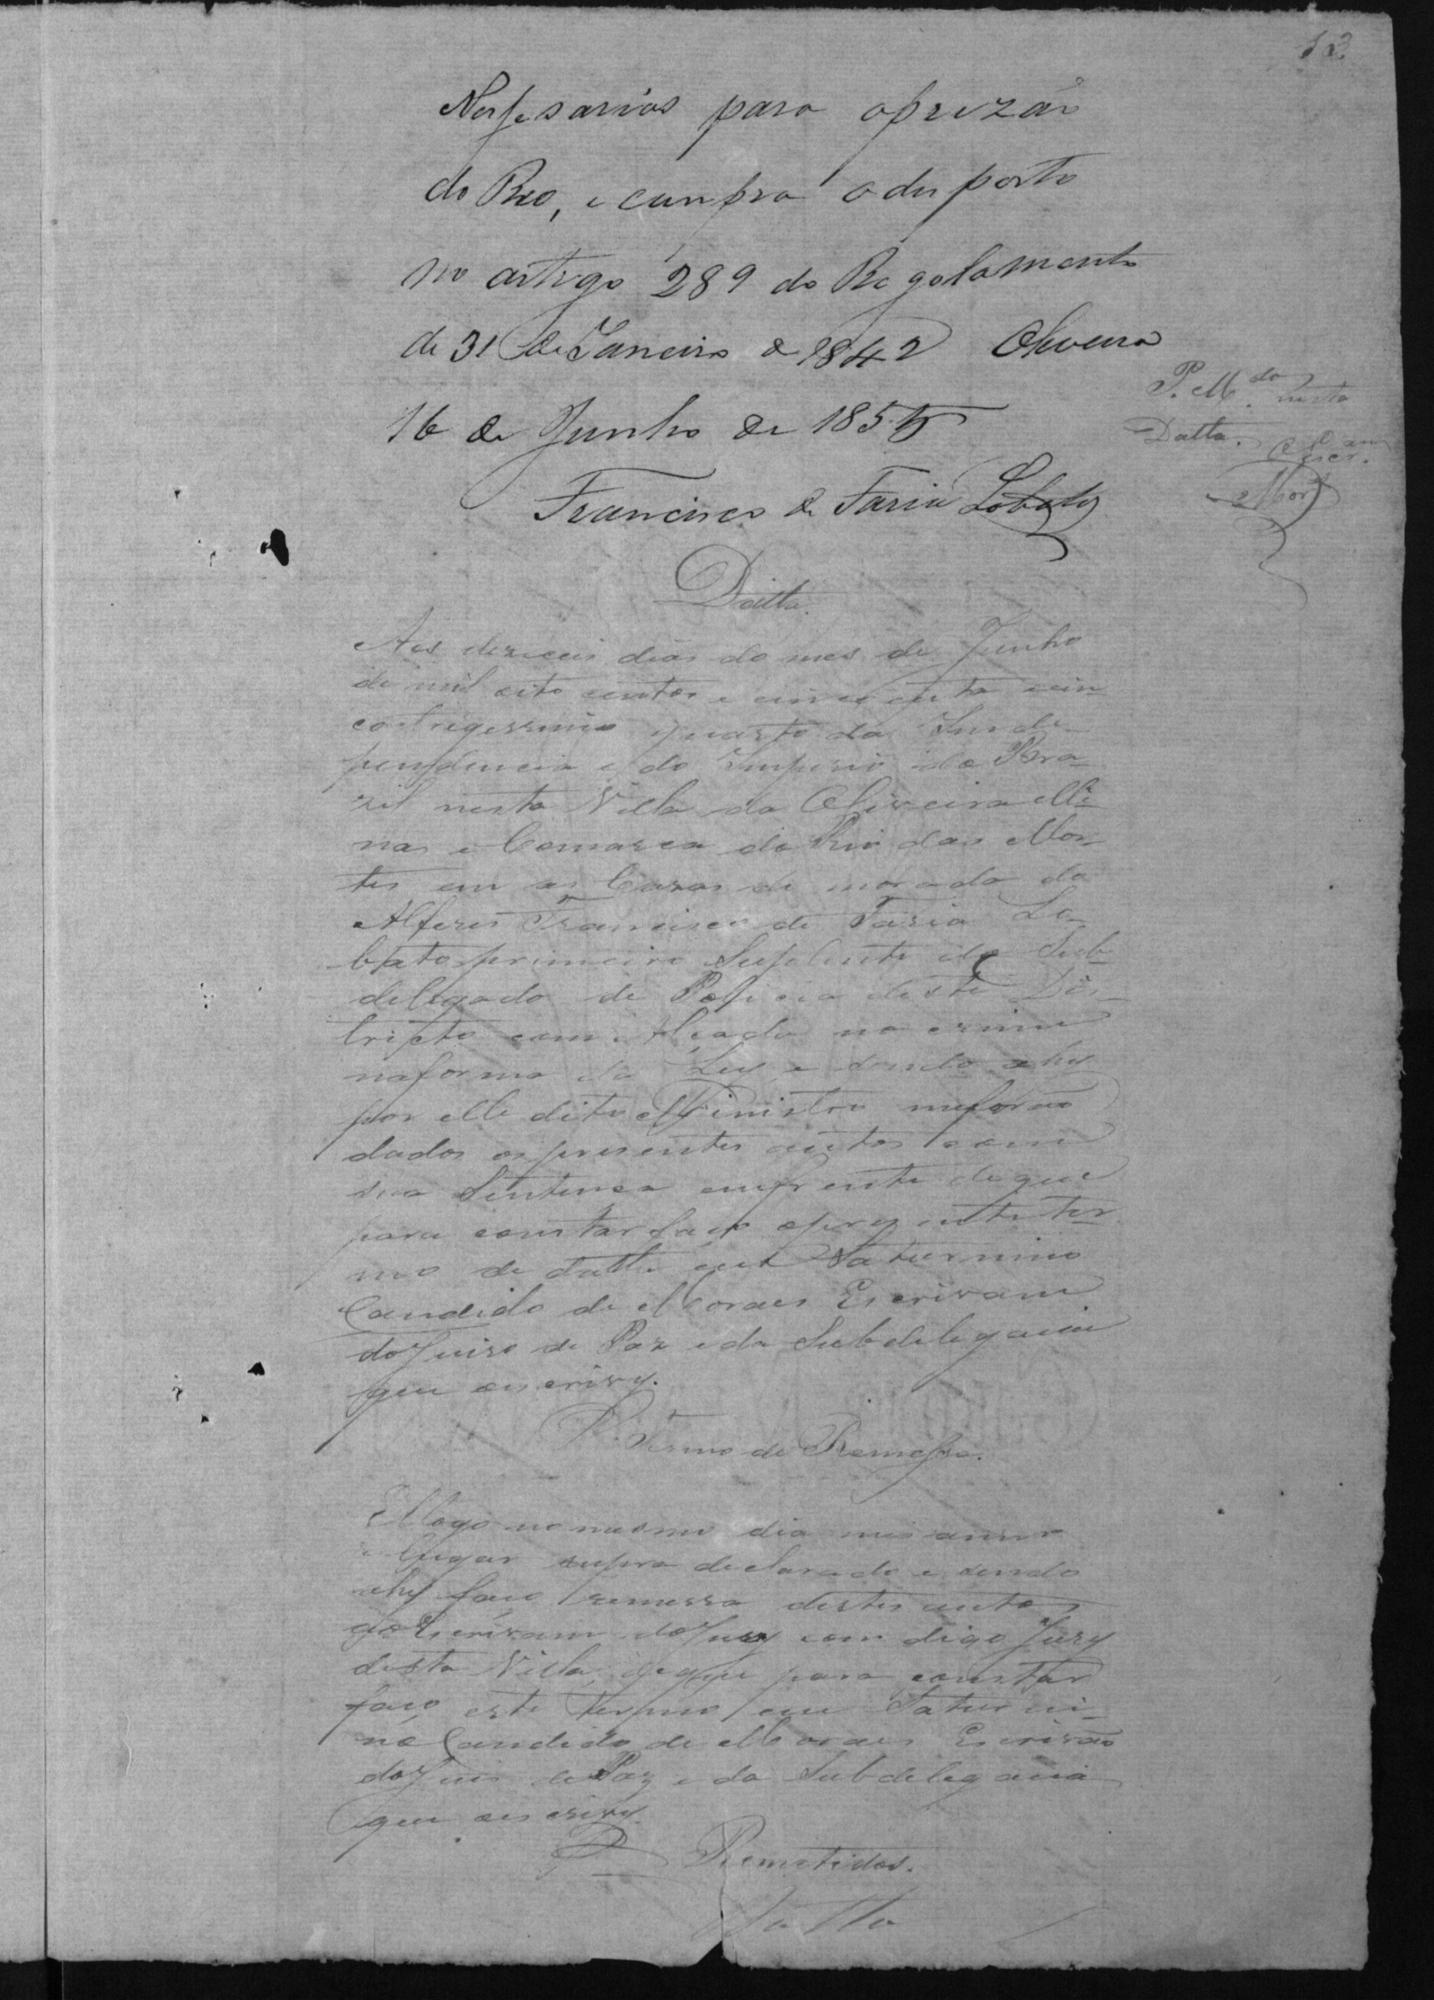 13
Nessesarios para aprizão
do Reo, e cumpra o disposto
no artigo 289 do Regolamento
de 31 de Janeiro de 1842 Oliveira
16 de Junho de 1855
Francisco de Faria Lobato
P. M.do nesta
Datta.
Datta.
Aos dezeceis dias do mes de Junho
de mil oito centos e cincoenta e cin
co trigessimo quarto da Inde-
pendencia e do Imperio do Bra-
zil nesta Villa da Oliveira Mi-
nas e Comarca do Rio das Mor-
tes em as Cazas de morada do
Alferes Francisco de Faria Lo-
bato primeiro Suplente do Sub-
delegado de Policia deste Dis-
tricto com Alçada no crime
naforma da Ley e sendo ahy
por elle dito Ministro me foram
dados os presentes autos com
sua Sentença em frente de que
para constar faço o prezente ter
mo de datta eu Saturnino
Candido de Moraes Escrivam
do Juiso de Paz e da Subdelegacia
que o escrivy.
Termo de Remessa.
E logo no mesmo dia mes anno
e lugar supra declarado e sendo
ahy faço remessa destes autos
ao Escrivam do Jury com digo Jury
desta Villa deque para constar
faço este termo eu Saturni-
no Candido de Moraes Escrivão
do Juis de Paz e da Subdelegacia
que o escrivy.
Remetidos.
Datta